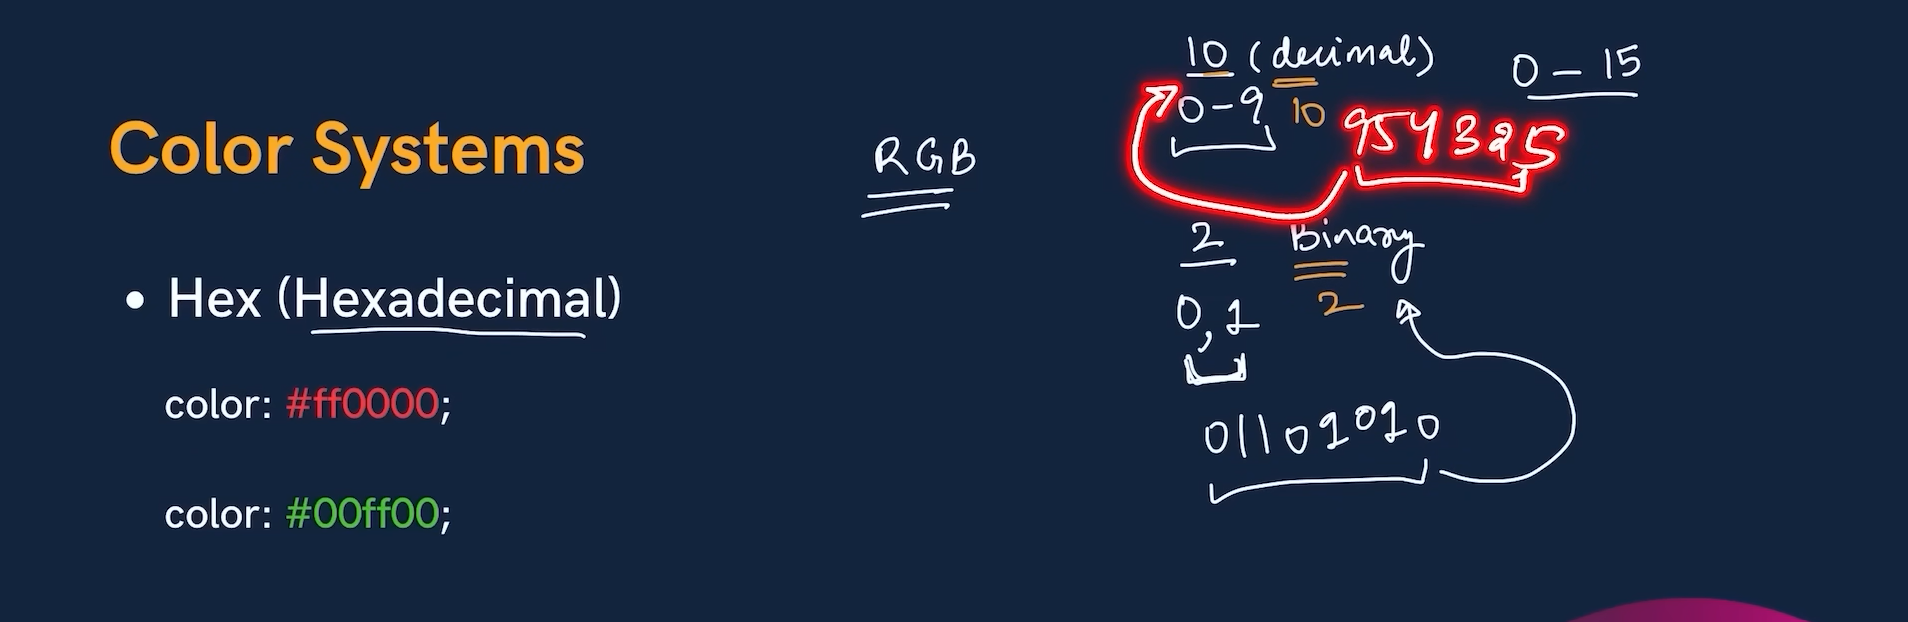 Color Systems
• Hex (Hexadecimal)
color: #ff0000;
color: #00ff00;
RGB
10 (decimal)
0-9 10
0 - 15
954325
2 Binary
0,1 2
01101010